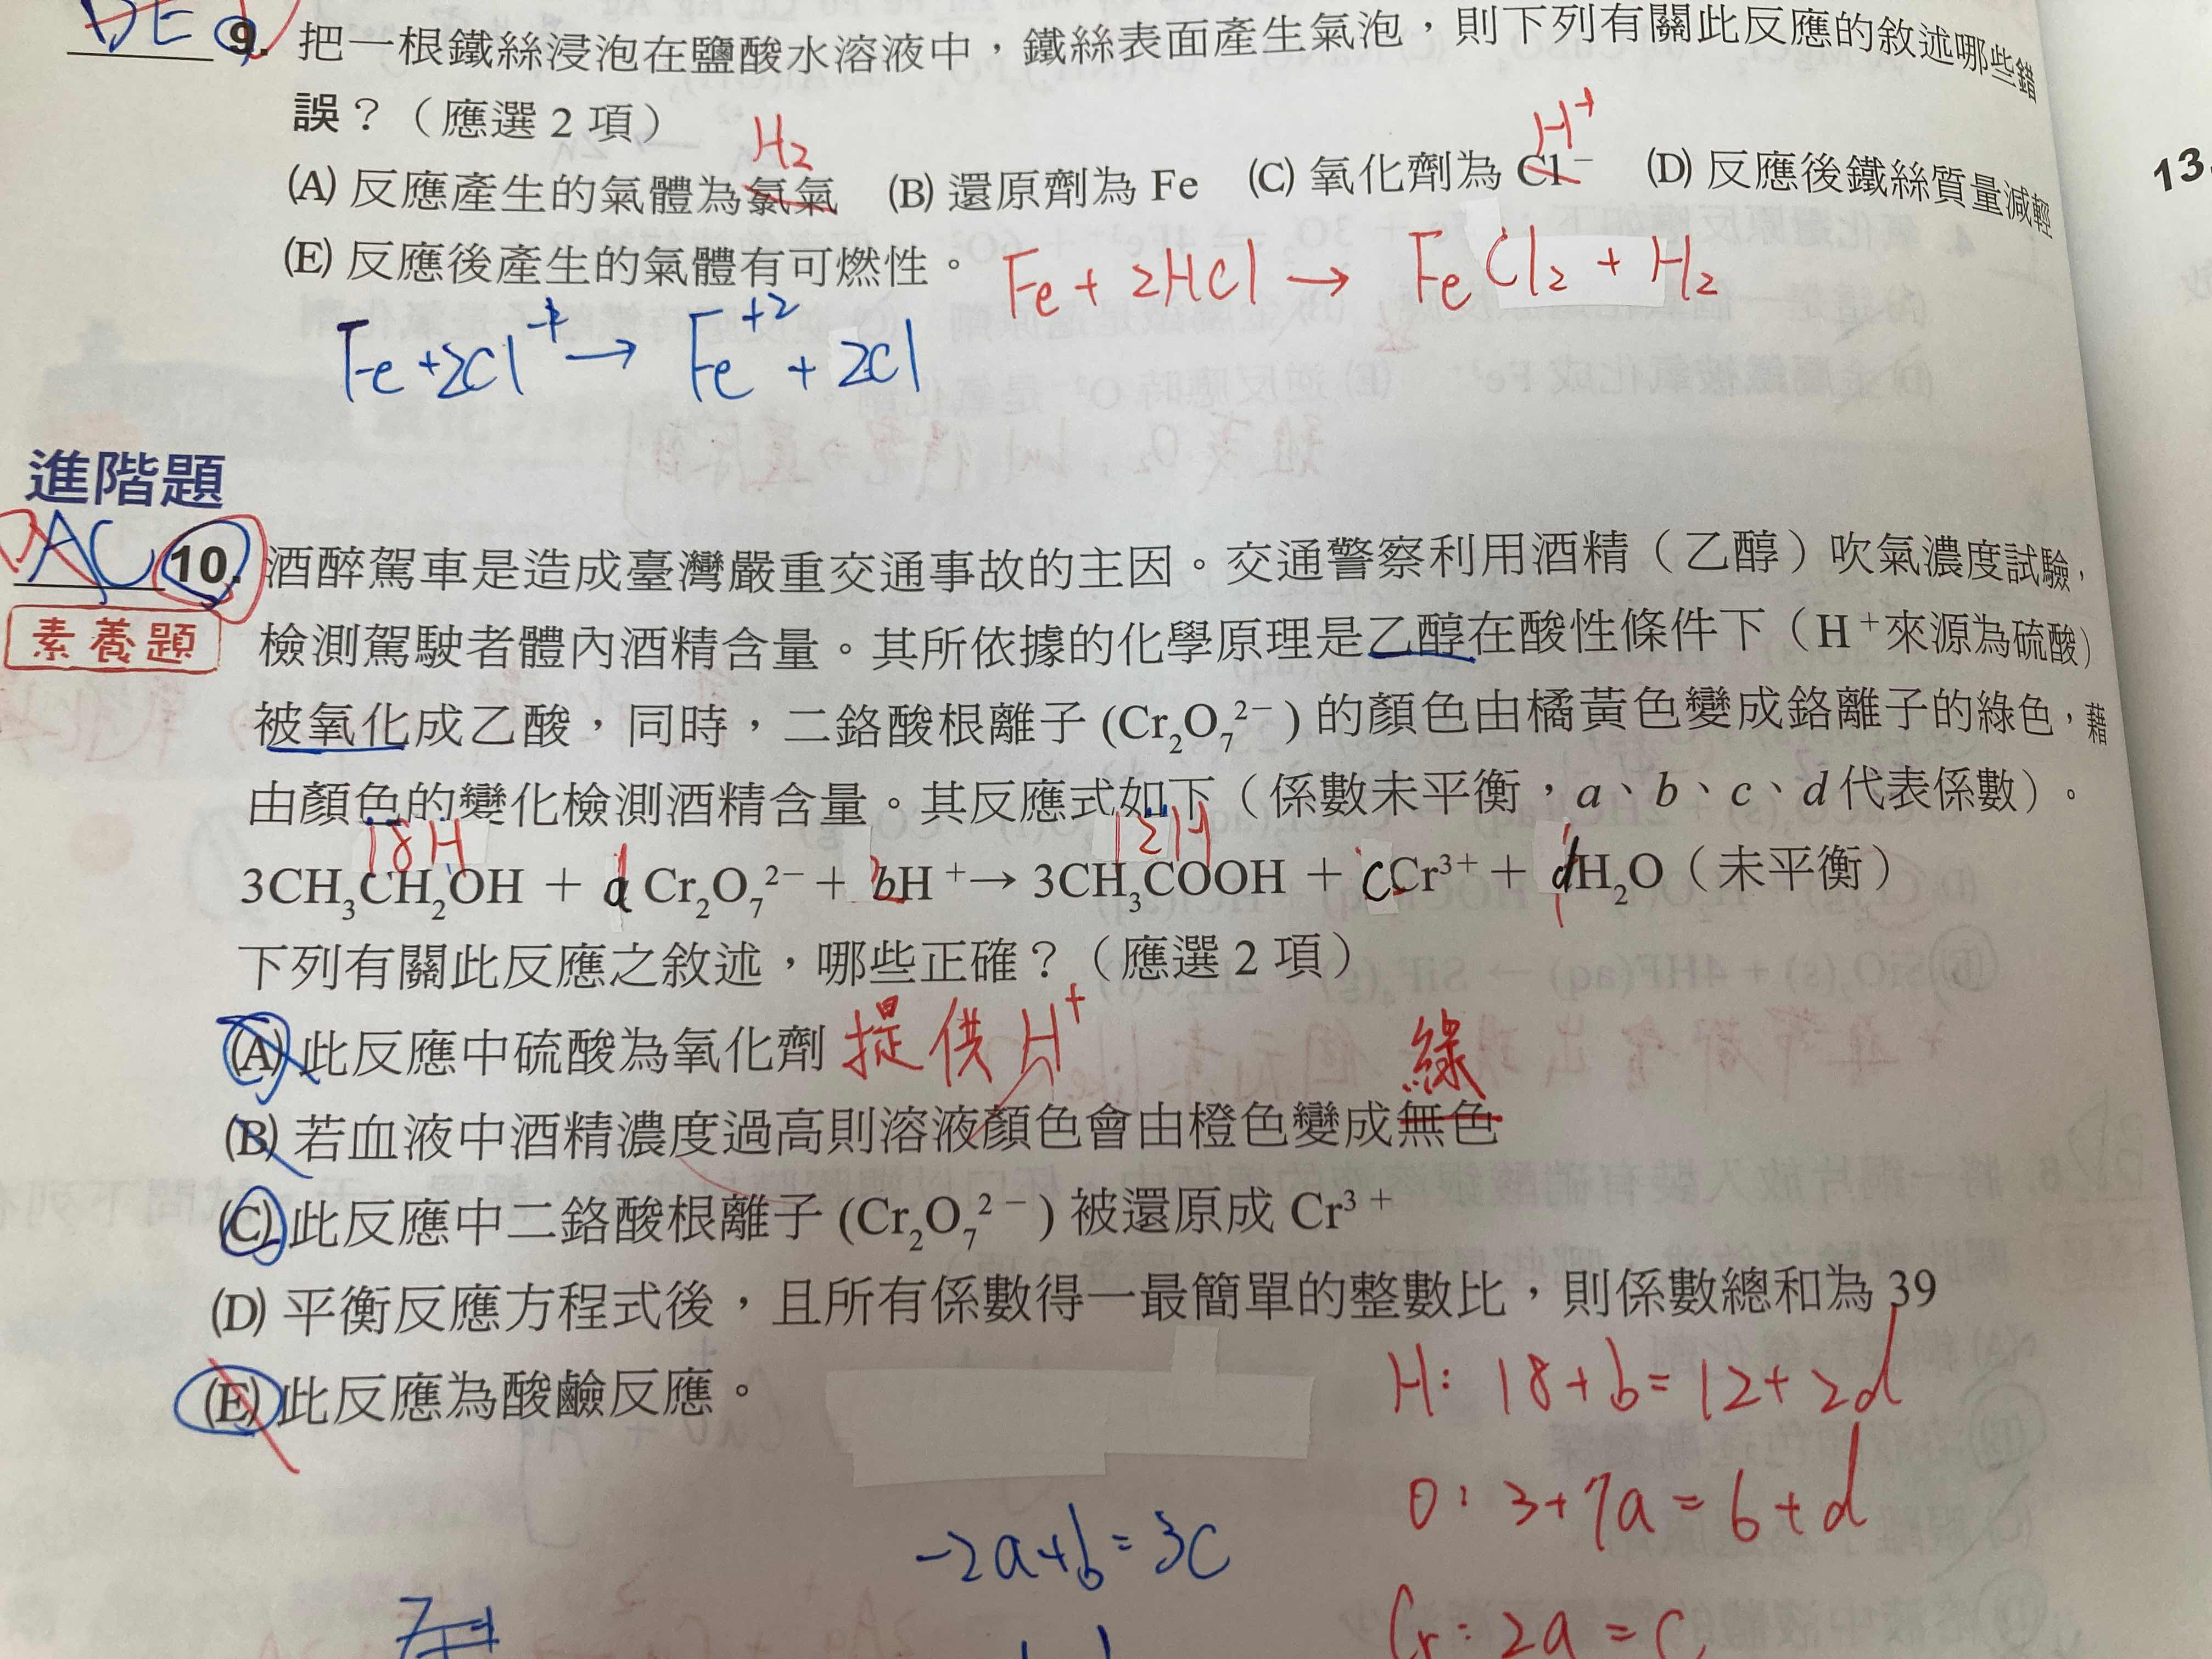 DE 9. 把一根鐵絲浸泡在鹽酸水溶液中，鐵絲表面產生氣泡，則下列有關此反應的敘述哪些錯
誤？（應選 2 項）
H2 H+
(A) 反應產生的氣體為氯氣 (B) 還原劑為 Fe (C) 氧化劑為 Cl⁻ (D) 反應後鐵絲質量減輕
(E) 反應後產生的氣體有可燃性。 Fe + 2HCl → FeCl2 + H2
Fe + 2Cl → Fe+2 + 2Cl
13.
進階題
AC 10. 酒醉駕車是造成臺灣嚴重交通事故的主因。交通警察利用酒精（乙醇）吹氣濃度試驗，
素養題
檢測駕駛者體內酒精含量。其所依據的化學原理是乙醇在酸性條件下（H⁺來源為硫酸）
被氧化成乙酸，同時，二鉻酸根離子 (Cr₂O₇²⁻) 的顏色由橘黃色變成鉻離子的綠色，藉
由顏色的變化檢測酒精含量。其反應式如下（係數未平衡，a、b、c、d 代表係數）。
18H 12H
3CH₃CH₂OH + a Cr₂O₇²⁻ + bH⁺→ 3CH₃COOH + cCr³⁺ + dH₂O（未平衡）
下列有關此反應之敘述，哪些正確？（應選 2 項）
(A) 此反應中硫酸為氧化劑 提供 H+
綠
(B) 若血液中酒精濃度過高則溶液顏色會由橙色變成無色
(C) 此反應中二鉻酸根離子 (Cr₂O₇²⁻) 被還原成 Cr³⁺
(D) 平衡反應方程式後，且所有係數得一最簡單的整數比，則係數總和為 39
(E) 此反應為酸鹼反應。
H: 18+b=12+2d
O: 3+7a=6+d
-2a+b=3c
Cr: 2a=c